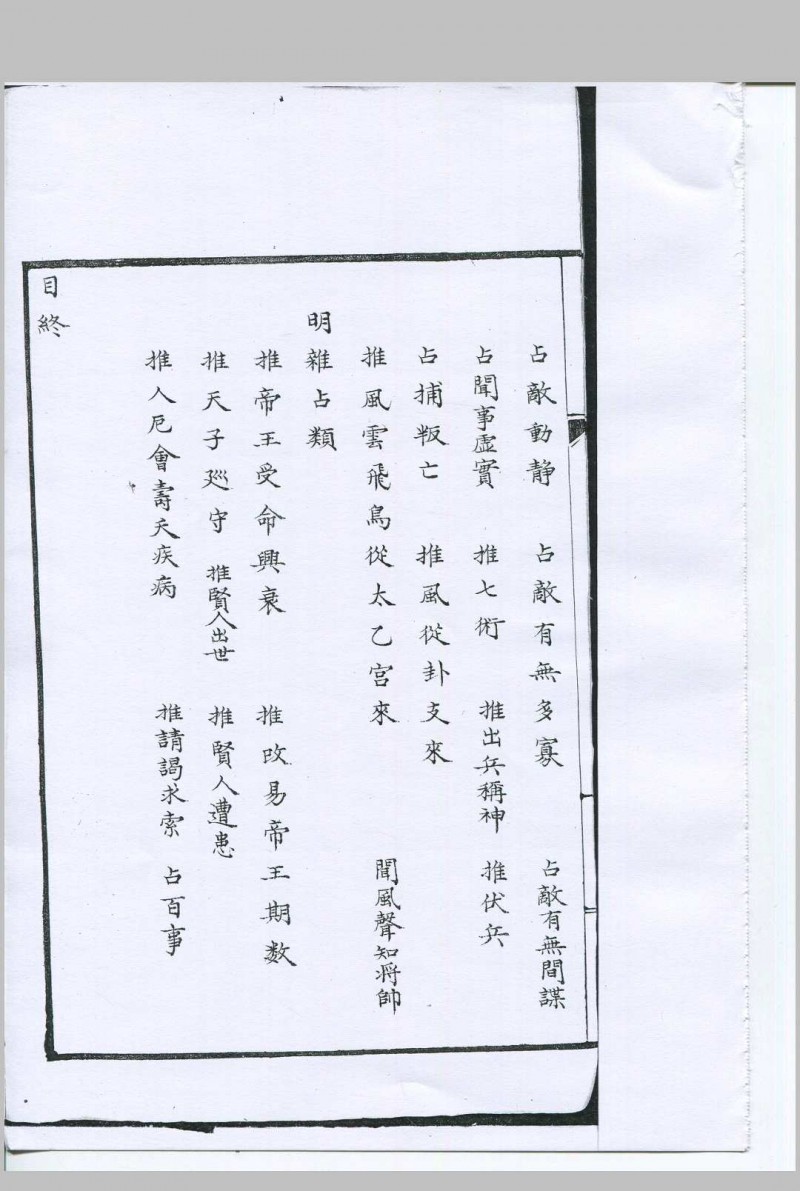 占敵動靜　占敵有無多寡　占敵有無間諜
占聞事虛實　推七術　推出兵稱神　推伏兵
占捕叛亡　推風從卦支來
推風雲飛鳥從太乙宮來　聞風聲知將帥
明雜占類
推帝王受命興衰　推改易帝王期数
推天子廵守　推賢人出世　推賢人遭患
推人厄會壽夭疾病　推請謁求索　占百事
目終